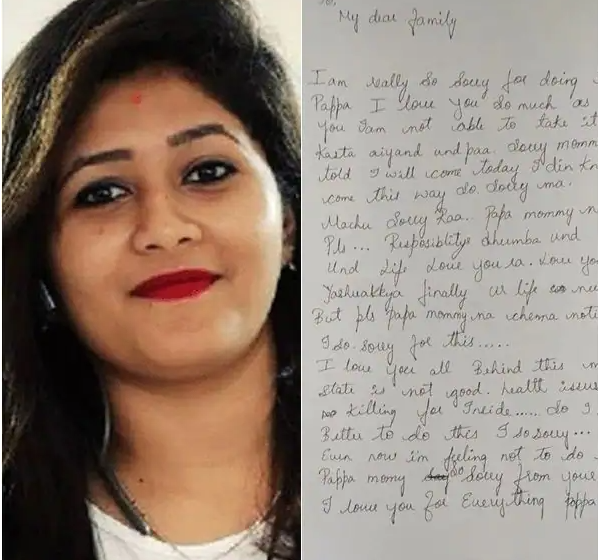 My dear family
I am really so sorry for doing
Pappa I love you so much as
you I am not able to take it
Kasta aiyand undpaa. Sorry momm
told I will come today I din kn
come this way so. Sorry ma.
Machu Sorry Raa.. Papa mommy n
Pls... Resposiblitys dhumba und
Und life Love you ra. Love yo
Yashuakkya finally ur life so nu
But pls papa mommyna chenna noti
I do. sorry for this.....
I love you all Behind this
State is not good. health issu
Killing for Inside..... So I
Better to do this I so sorry...
Even now i'm feeling not to do
Pappa momy soo sorry from your
I love you for Everything pappa